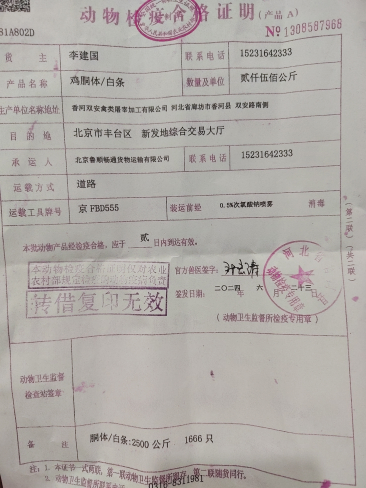 动物检疫合格证明(产品 A)
31A802D
№ 1308587968
货 主 李建国 联系电话 15231642333
产品名称 鸡胴体/白条 数量及单位 贰仟伍佰公斤
生产单位名称地址 香河双安禽类屠宰加工有限公司 河北省廊坊市香河县 双安路南侧
目的地 北京市丰台区 新发地综合交易大厅
承运人 北京鲁顺畅通货物运输有限公司 联系电话 15231642333
运载方式 道路
运载工具牌号 京FBD555 装运前经 0.5%次氯酸钠喷雾 消毒
本批动物产品经检疫合格,应于 贰 日内到达有效。
本动物检疫合格证明仅对农业
转借复印无效
官方兽医签字:
签发日期: 二〇二四 六 二十三
(动物卫生监督所检疫专用章)
动物卫生监督
检查站签章
备 注 胴体/白条:2500 公斤 1666 只
注:1. 本证书一式两联,第一联动物卫生监督所留存,第二联随货同行。
2. 动物卫生监督所联系电话: 0316-8311981
(第二联)
(共二联)